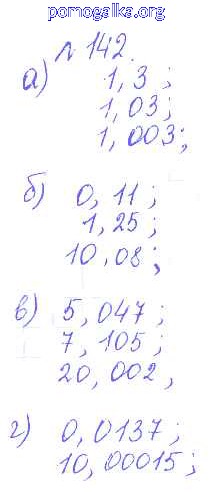 pomogalka.org
№ 142.
а) 1,3;
1,03;
1,003;
б) 0,11;
1,25;
10,08;
в) 5,047;
7,105;
20,002,
г) 0,0137;
10,00015;